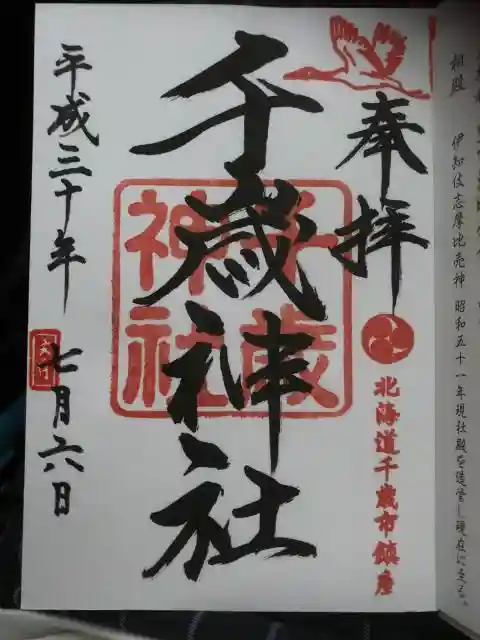 相殿 伊知伎志摩比売神 昭和五十一年現社殿を造営し現在に至る。
奉拝
北海道千歳市鎮座
千歳神社
千歳
神社
平成三十年 七月六日